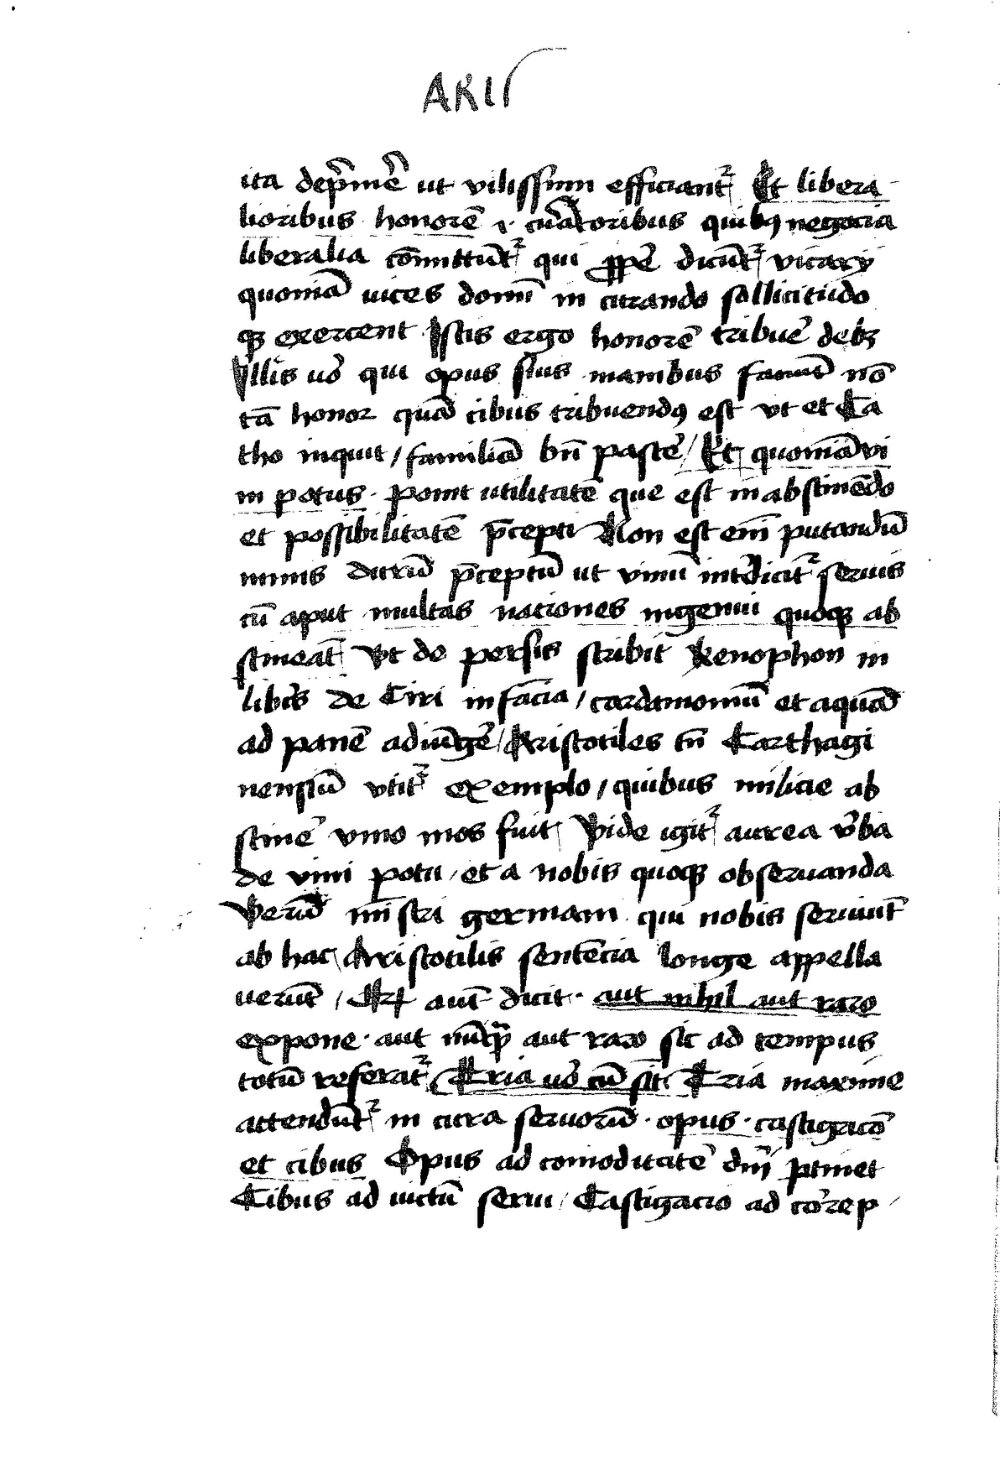 ARIS
ita dep̄me᷒ ut vilissimi efficiant᷑ Et libera-
lioribus honorē ⁊ cūatoribus quibꝫ negocia
liberalia cōmittūt᷑ qui ꝓpe᷒ dicūt᷑ vicarij
quoniā uices domī in curando sollicitudo
qꝫ exercent Istis ergo honorē tribue᷒ debꝫ
Illis uō qui opus suis manibus faciūt nō
tā honor quā cibus tribuendꝰ est vt et Ca
tho inquit / familiā bn̄ paste᷒ / Et quoniā vi
ni potus · ponit utilitatē que est in abstinēdo
et possibilitatē p̄cepti Non est em̄ putandū
nimis durū p̄ceptū ut vinū int̄dicit᷑ seruis
cū aput multas naciones ingenui quoqꝫ ab
stineāt Vt de persis scribit Xenophon in
libris de Ciri infācia / cardamomū et aquā
ad panē adiūge᷒ / Aristotiles tn̄ Carthagi
nensiū vtit᷑ exemplo / quibus milicie ab
stine᷒ vino mos fuit Vide igit᷑ aurea v̄ba
de vini potu / et a nobis quoqꝫ obseruanda
Verū mīstri germani qui nobis seruiūt
ab hac Aristotilis sentēcia longe appella
uerūt / autē dicit · aut nihil aut raro
expone · aut nūqꝫ aut raro sic ad tempus
totū referat᷑ Tria uō cū sīt Tria maxime
attendūt᷑ in cura seruorū · opus · castigacō
et cibus Opus ad comoditatē dn̄i ptinet
Cibus ad uictū serui / Castigacio ad correp /